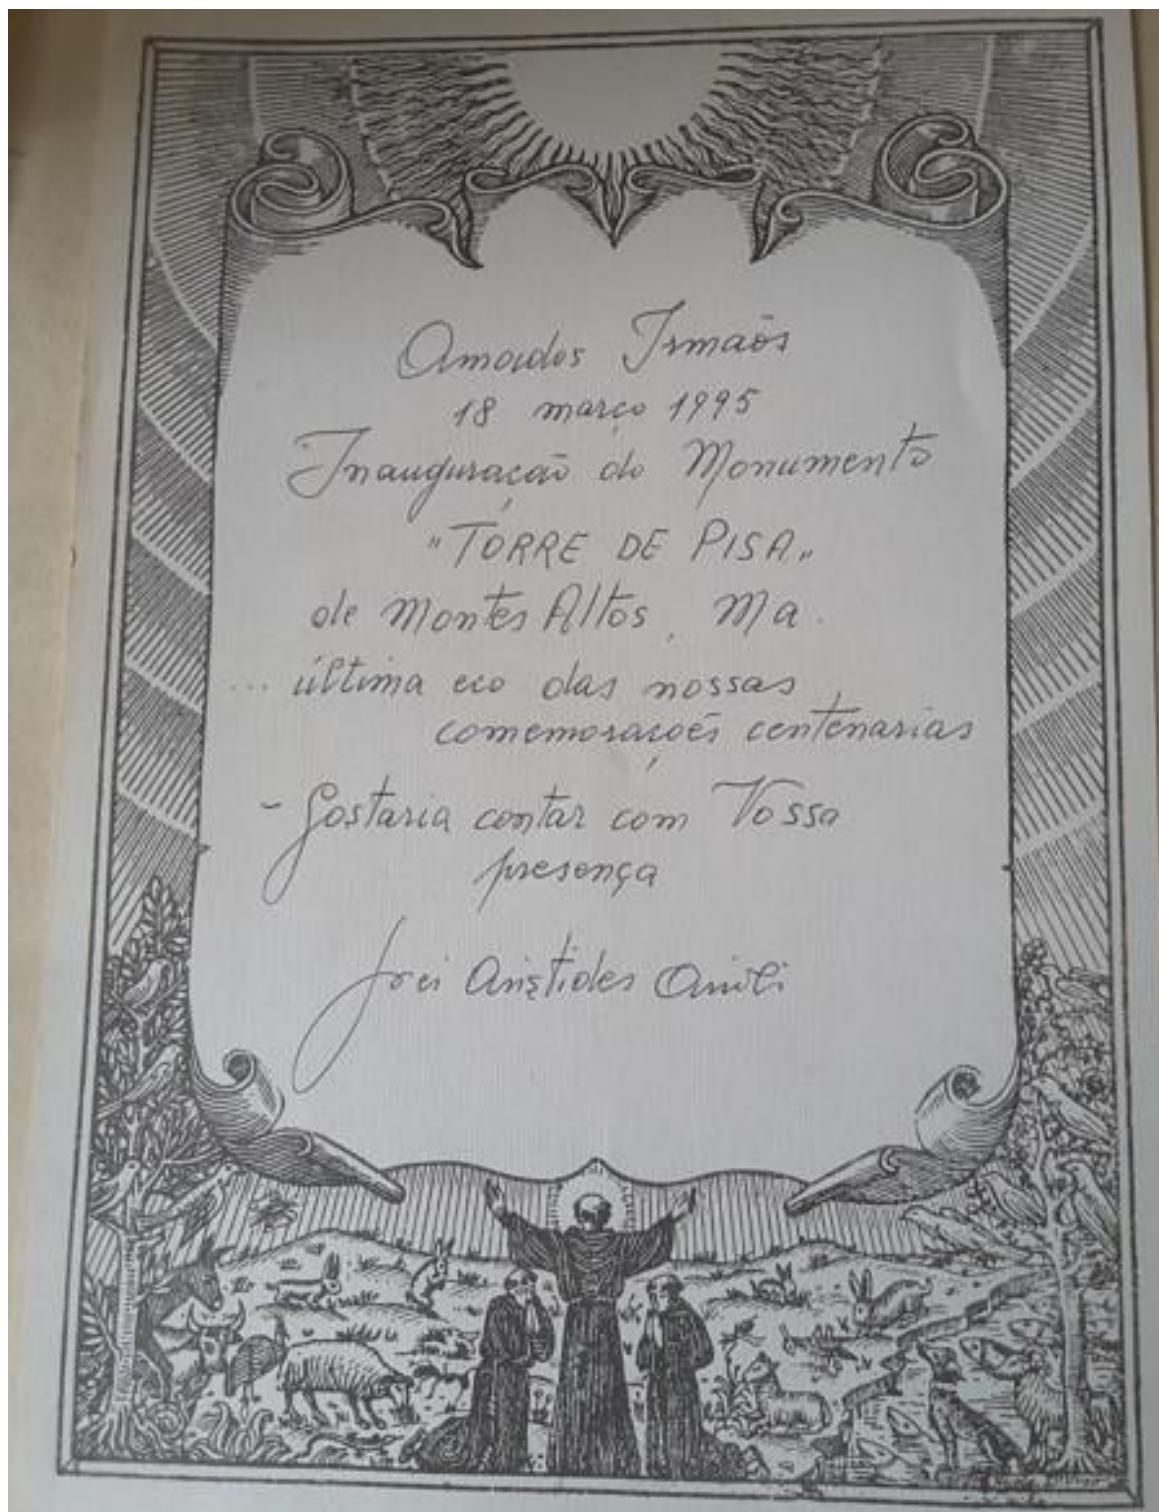 Amados Irmãos
18 março 1995
Inauguração do Monumento
"TORRE DE PISA"
de Montes Altos, Ma.
... última eco das nossas
comemorações centenarias
- Gostaria contar com Vossa
presença
frei Aristides Arioli